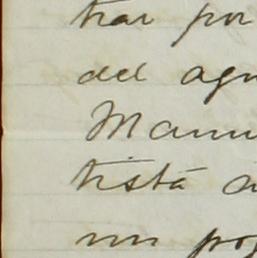 trar por
del agu
Manu
tistá a
un pro